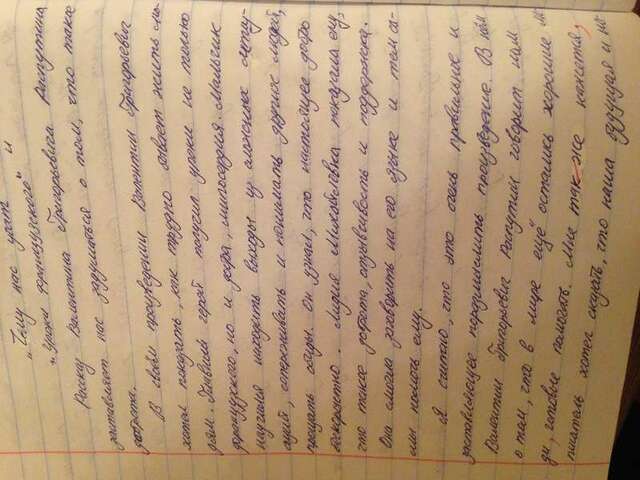 „Чему нас учат и
„Уроки французского"
Рассказ Валентина Григорьевича Распутина
заставляет нас задуматься о том, что такое
доброта.
В своём произведении Валентин Григорьевич
хотел показать, как трудно бывает жить лю-
дям. Главный герой получил уроки не только
французского, но и добра, милосердия. Мальчик
научился находить выходы из сложных ситуа-
ций, сопереживать и понимать других людей,
прощать обиды. Он узнал, что настоящее добро
бескорыстно. Лидия Михайловна показала ему,
что такое доброта, отзывсивость и поддержка.
Она смогла заговорить на его языке и тем са-
мы помочь ему.
Я считаю, что это очень правильное и
заставляющее поразмыслить произведение. В нём
Валентин Григорьевич Распутин говорит нам
о том, что в мире ещё остались хорошие лю-
ди, готовые помогать. Мне так же кажется,
писатель хотел сказать, что наша будущая и на-